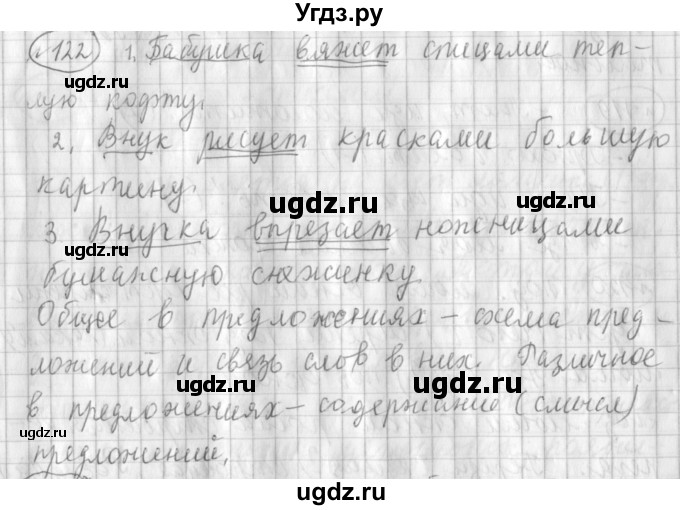 Угдз.ру
122 1. Бабушка вяжет спицами теп-
лую кофту.
2. Внук рисует красками большую
картину.
3 Внучка впрезает ножницами
бумажную снежинку.
Общее в предложениях – схема пред-
ложений и связь слов в них. Различное
в предложениях – содержание (смысл)
предложений.
ugdz.ru
ugdz.ru
ugdz.ru
ugdz.ru
ugdz.ru
ugdz.ru
ugdz.ru
ugdz.ru
ugdz.ru
ugdz.ru
ugdz.ru